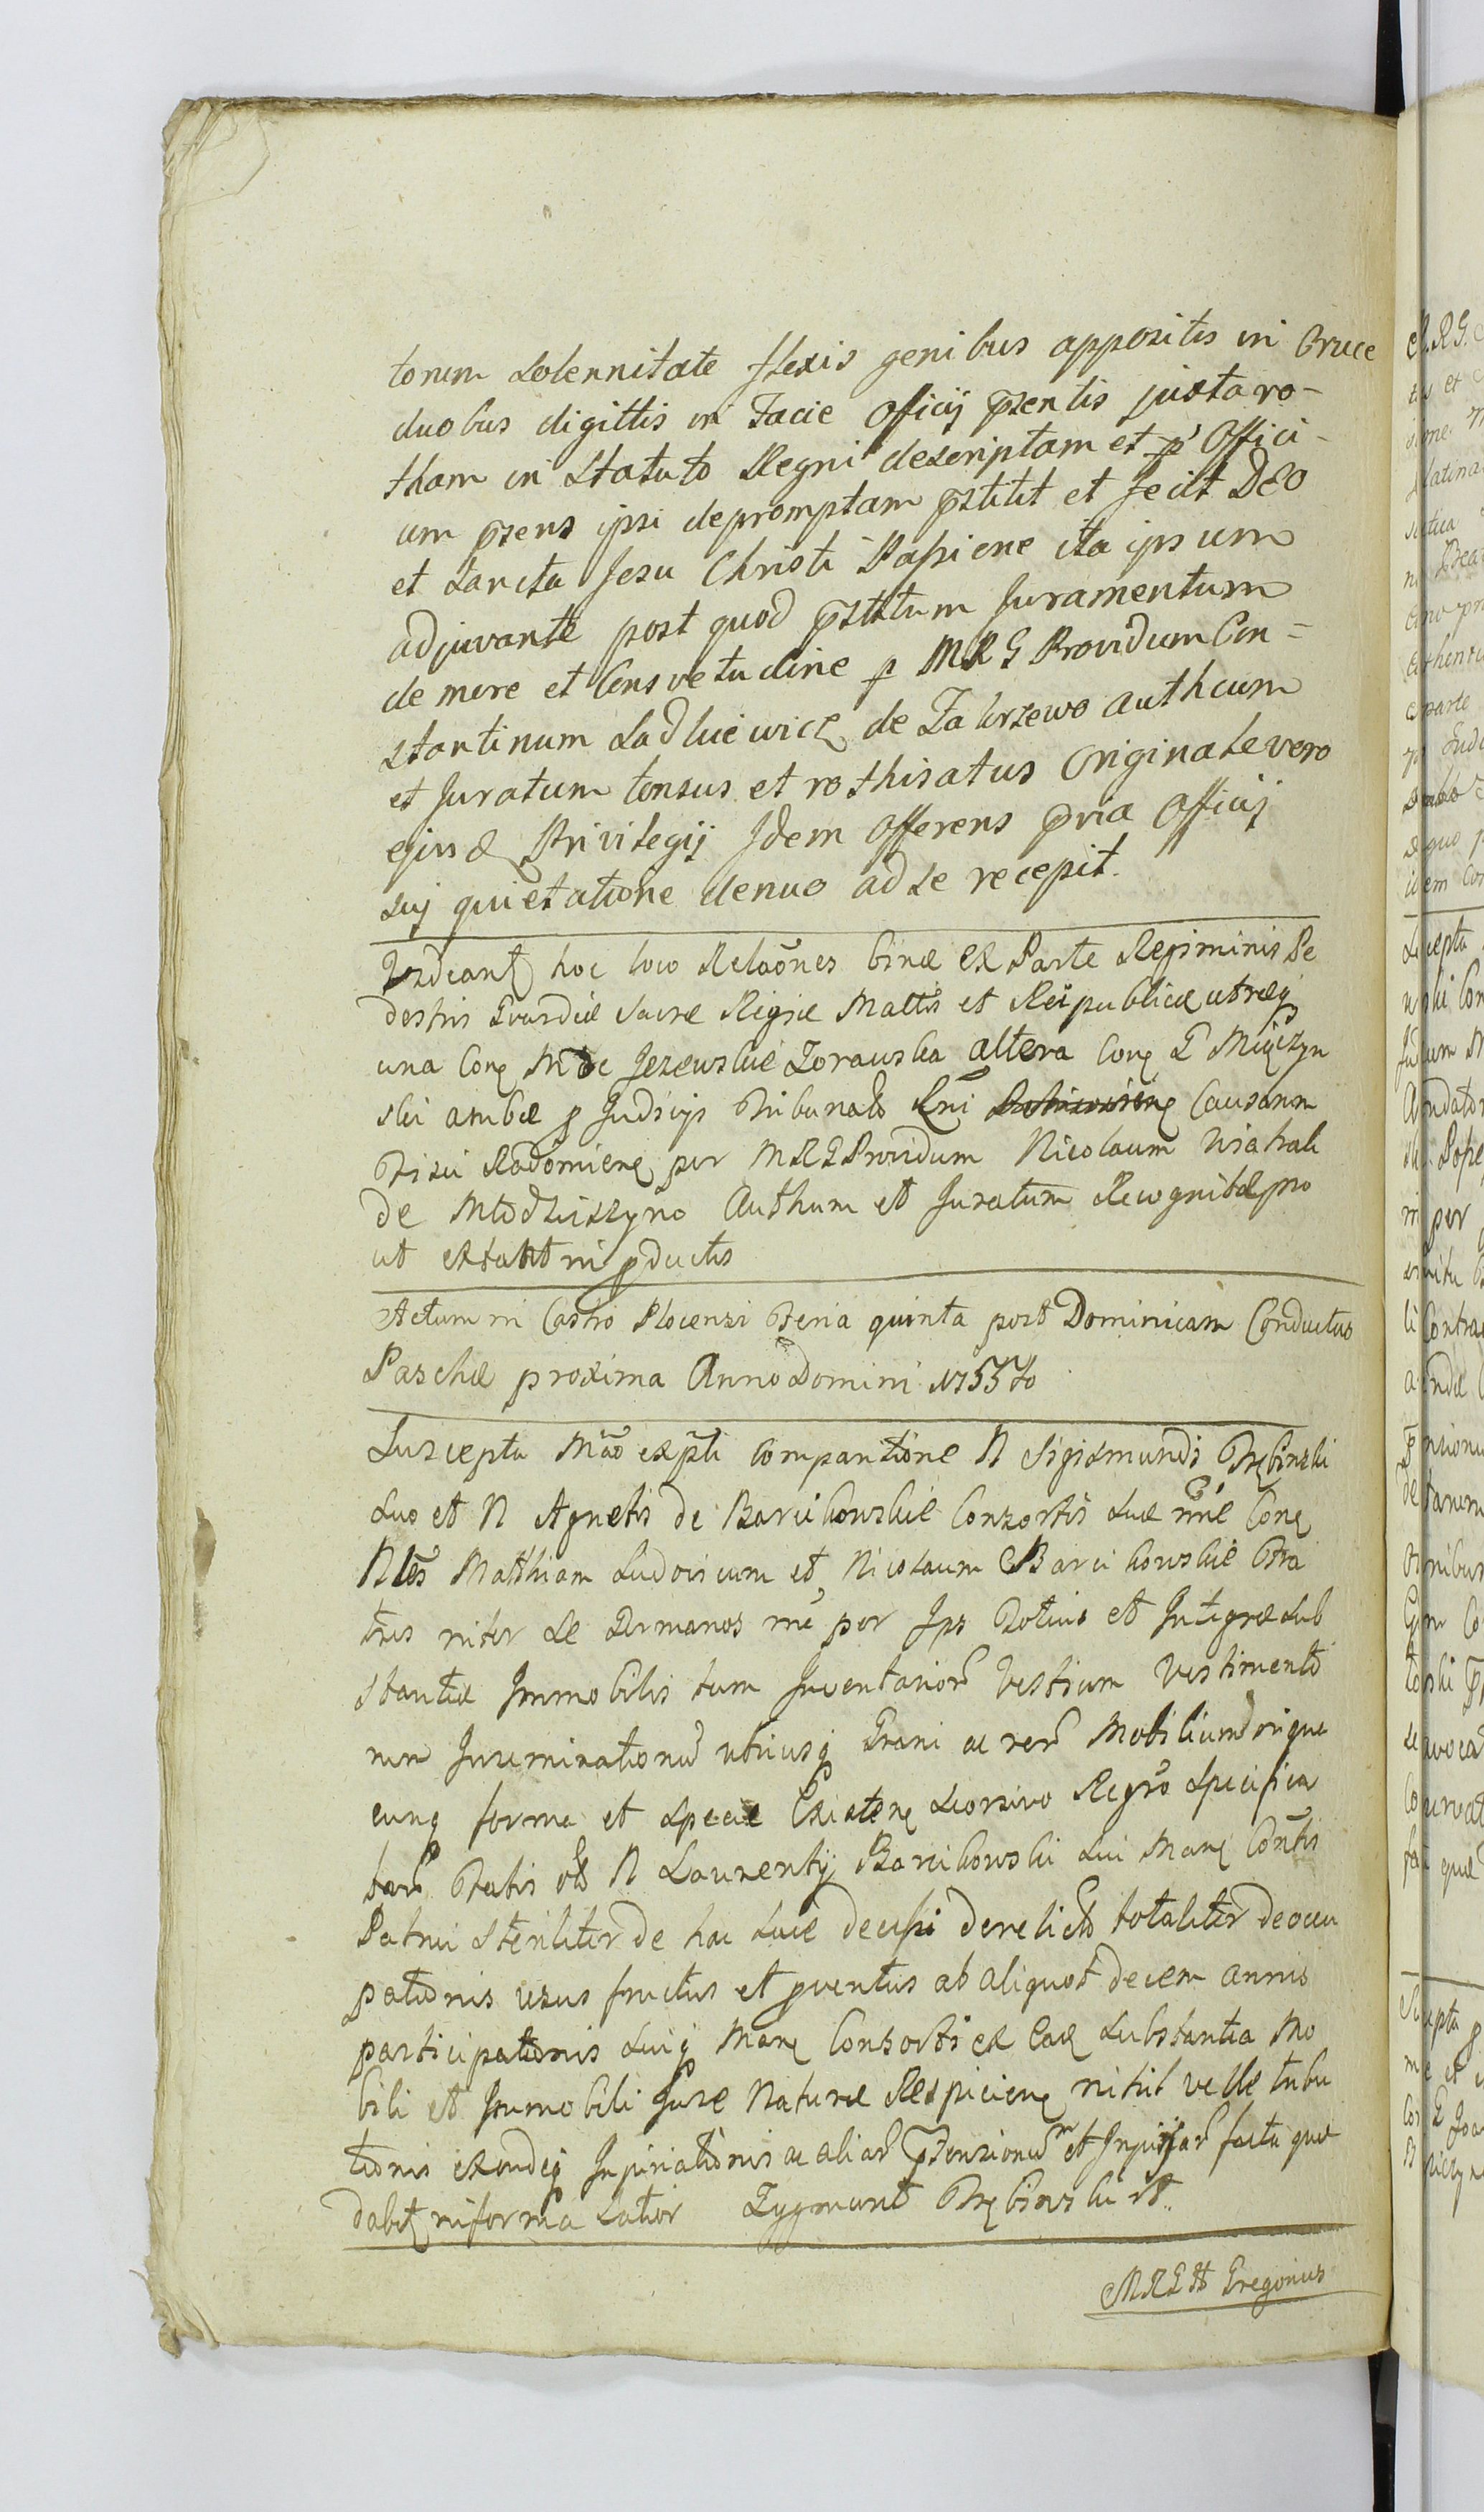 torum Solennitate flexis genibus appositis in Cruce
duobus digittis in Facie Officij pzentis juxta ro-
tham in Statuto Regni descriptam et p Offici-
um pzens ipsi depromptam pstitit et fecit DEO
et Sancta Jesu Christi Passione ita ipsum
adjuvante post quod pstitum Juramentum
de more et Consvetudine p MRG Providum Con=
stantinum Sadkiewicz de Zakrzewo authcum
et Juratum tonsus et rothisatus Originale vero
ejusd Privilegij Idem Offerens pvia Officij
sui quietatione denuo ad se recepit.
hoc loco Relaones binæ ex Parte Regiminis Pe
destris Gvardiæ Sacræ Regiæ Mattis et Reipublicæ utræq
una Con Jezewskie Zorawska altera Con G
ski ambæ p Judicijs Tribunals Rni Causarum
Fisci Radomien per MRG Providum Nicolaum
de Authum et Juratum Recognitæ pro
ut extant in pductis
Actum in Castro Plocensi Feria quinta post Dominicam Conductus
Paschæ proxima Anno Domini 1755to
Suscepta Mao ex pti Comparitione N Sigismundi Trębinski
Suo et N Agnetis de Barcikowskie Consortis Suæ nnie Con
Nles Matthiam Ludovicum et Nicolaum Barcikowskie Fra
tres inter se Germanos per Ips Totius et Integræ Sub
stantiæ Immobilis tum Inventarior Vestium Vestimento
rum Inseminationu utriusq Grani ac rer Mobilium in qua
cunq forma et Specie Existen Seorsivo Regro Specifica
tar N Laurentij Barcikowski Sui Man
Patrui Steriliter de hac Luce decessi derelict totaliter de occu
pationis usus fructus et pventus ab aliquot decem annis
participationis Suiq Man Consorti ex Ead Substantia Mo
bili et Immobili Jure Naturæ Respicien nihil velle tribu
tionis exondeq Injuriationis ac aliar ptensionu et Injuriar facta quæ
dabit informa Latior Zygmunt Trębinski
MRG Gregorius